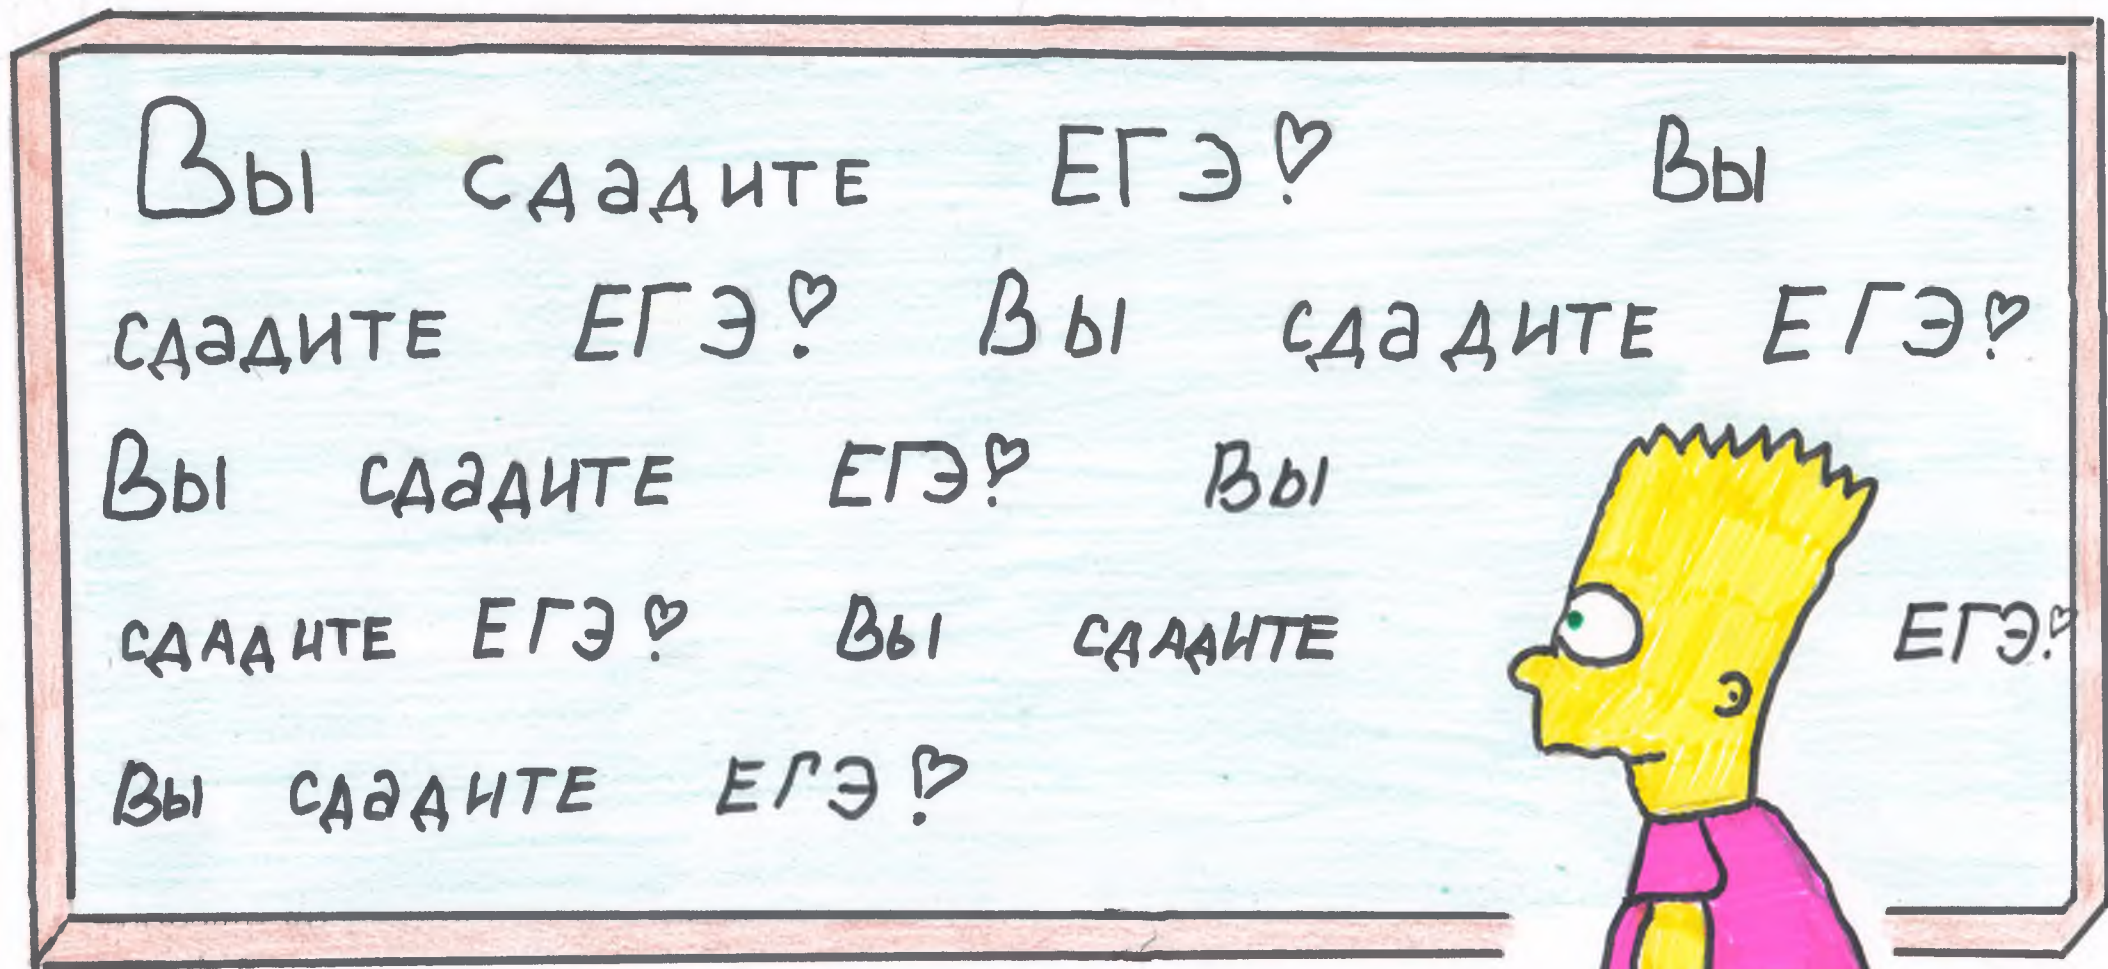 Вы сдадите ЕГЭ! Вы
сдадите ЕГЭ! Вы сдадите ЕГЭ!
Вы сдадите ЕГЭ! Вы
сдадите ЕГЭ! Вы сдадите ЕГЭ!
Вы сдадите ЕГЭ!